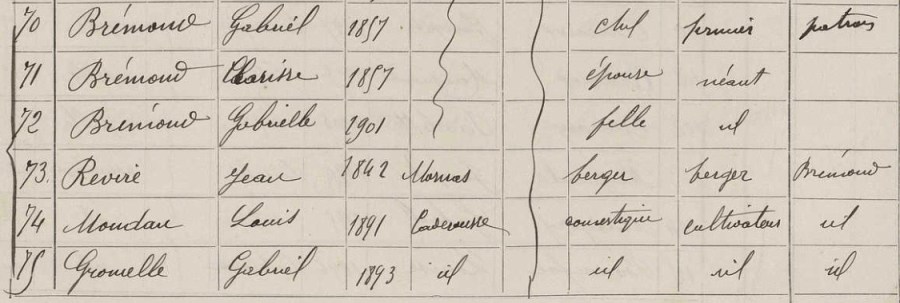 70 Brémond Gabriél 1857 chef fermier patron
71 Brémond Clarisse 1857 épouse néant
72 Brémond Gabrielle 1901 fille id
73 Reviré Jean 1842 Mornas berger berger Brémond
74 Moudau Louis 1891 Caderousse domestique cultivateur id
75 Gromelle Gabriél 1893 id id id id